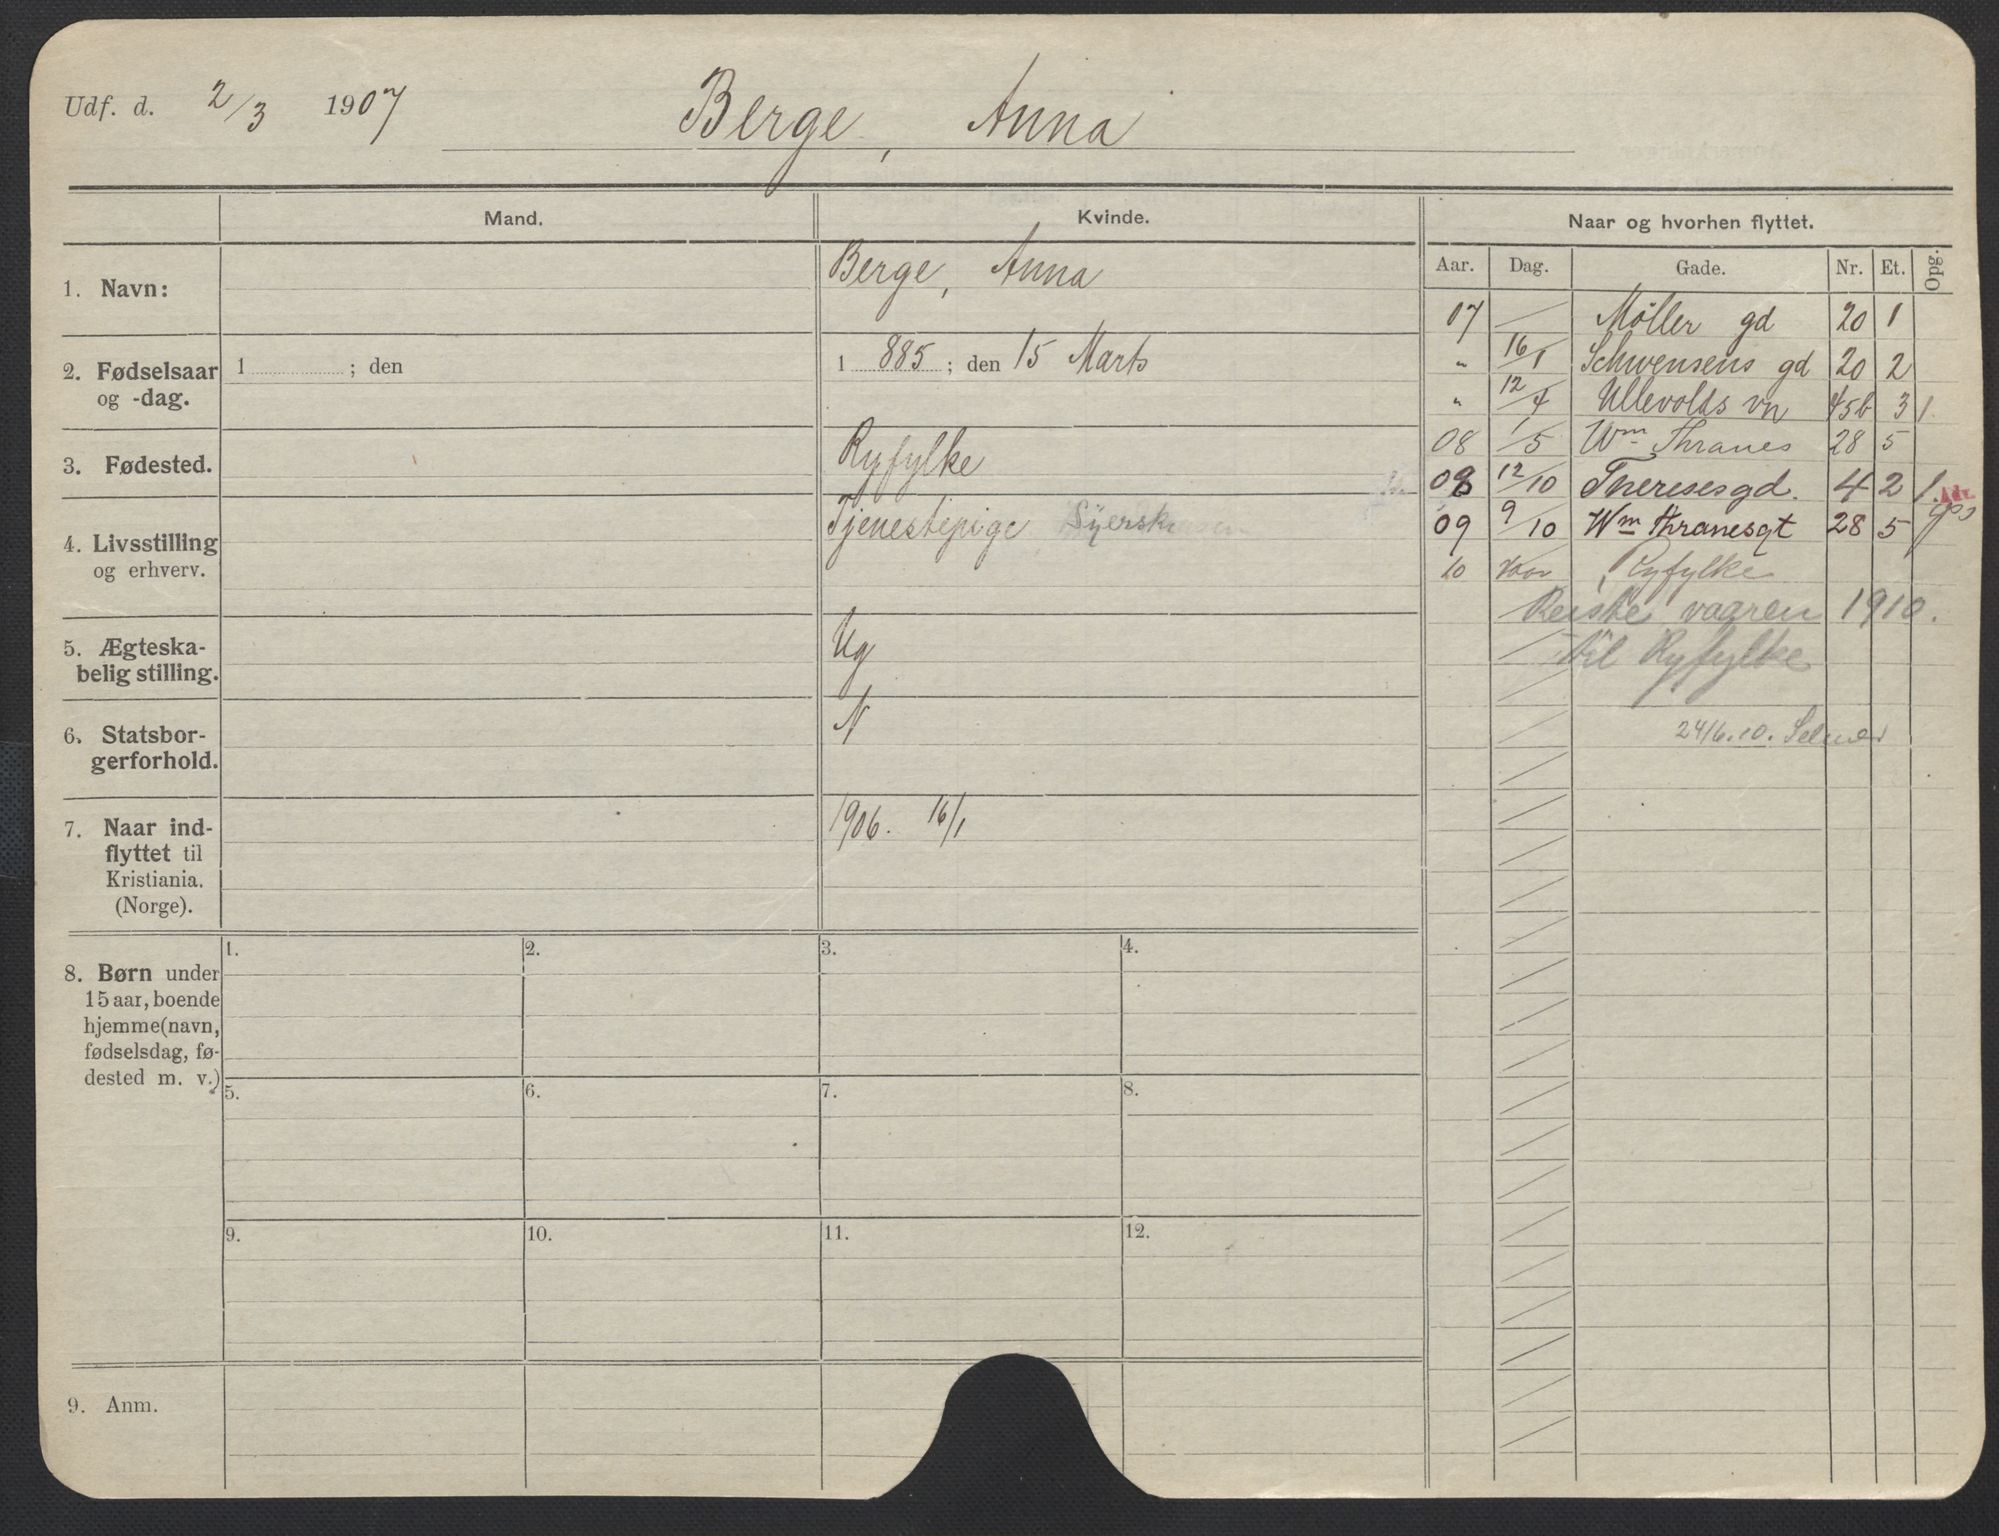 Udf. d. 2/3 1907 Berge, Anna
Mand. Kvinde. Naar og hvorhen flyttet.
Aar. Dag. Gade. Nr. Et. Opg.
1. Navn: Berge, Anna
2. Fødselsaar og -dag. 1 ; den 1 885 ; den 15 Marts
3. Fødested. Ryfylke
4. Livsstilling og erhverv. Tjenestepige
5. Ægteska-
belig stilling. Ug
6. Statsbor-
gerforhold. N
7. Naar ind-
flyttet til
Kristiania.
(Norge). 1906. 16/1
07 Møller gd 20 1
" 16/1 Schwensens gd 20 2
" 12/4 Ullevolds vn 45b 3 1.
08 1/5 Wm Thranes 28 5
08 12/10 Theresesgd. 4 2 1.
09 9/10 Wm Thranesgt 28 5
10 Vaar Ryfylke
Reiste vaaren 1910.
til Ryfylke
24/6.10. Selmer
8. Børn under
15 aar, boende
hjemme (navn,
fødselsdag, fø-
dested m. v.)
1. 2. 3. 4.
5. 6. 7. 8.
9. 10. 11. 12.
9. Anm.